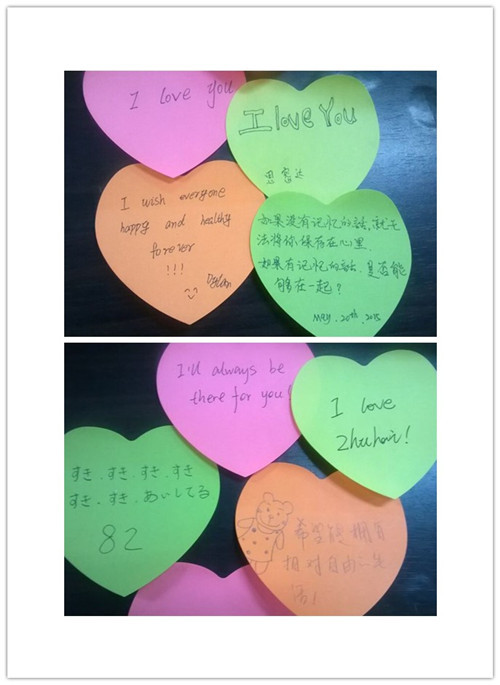 I love you
I love You
思密达
I wish everyone
happy and healthy
forever
!!!
Dylan
如果没有记忆的话,就无
法将你保存在心里.
如果有记忆的话,是否能
够在一起?
May. 20th, 2015
I'll always be
there for you!
I love
Zhuhai!
すき、すき、すき、すき
すき、すき、あいしてる
82
希望能拥有
相对自由二生
活!